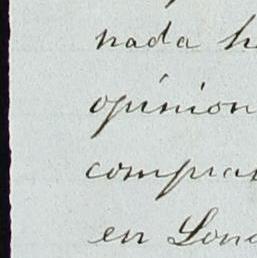 nada h
opinion
compra
en Lon